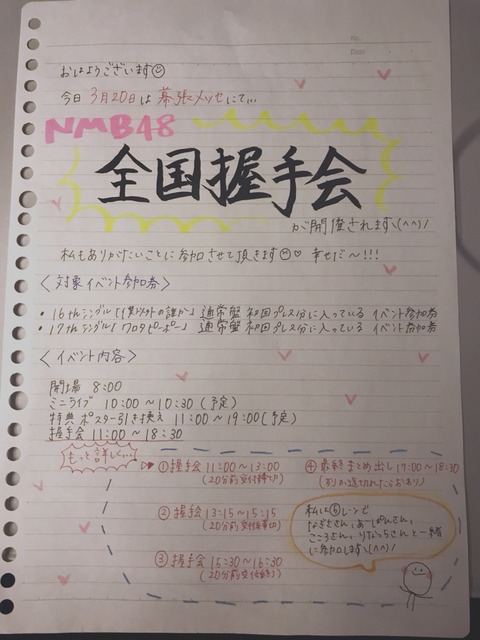 No.
Date
おはようございます
今日 3月20日は 幕張メッセにて...
NMB48
全国握手会
が開催されます\(^^)/
私もありがたいことに参加させて頂きます♡ 幸せだ〜!!!
〈対象イベント参加券〉
・16thシングル「僕以外の誰か」通常盤 初回プレス分に入っている イベント参加券
・17thシングル「ワロタピーポー」通常盤 初回プレス分に入っている イベント参加券
〈イベント内容〉
開場 8:00
ミニライブ 10:00〜10:30(予定)
特典ポスター引き換え 11:00〜19:00(予定)
握手会 11:00〜18:30
もっと詳しく...
①握手会 11:00〜13:00
(20分前受付締切)
②握手会 13:15〜15:15
(20分前受付締切)
③握手会 15:30〜16:30
(20分前受付終了)
④最終まとめ出し 17:00〜18:30
(列が途切れたらおわり)
私は⑥レーンで
なぎささん、あーぽんさん、
こころさん、りなっちさんと一緒
に参加します\(^^)/